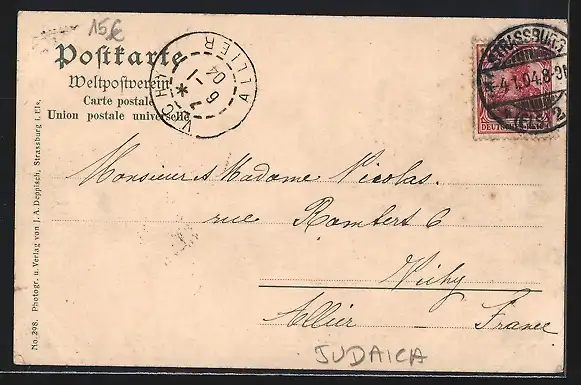 15€
Postkarte
Weltpostverein
Carte postale
Union postale universelle
VICHY ALLIER
6 -1
04
STRASSBURG
4.1.04.8-
(ELS.) 2
DEUTSCHES
Monsieur et Madame Nicolas.
rue Rambert 6
Vichy
Allier France
JUDAICA
No. 298. Photogr. u. Verlag von J. A. Deppisch, Strassburg i. Els.